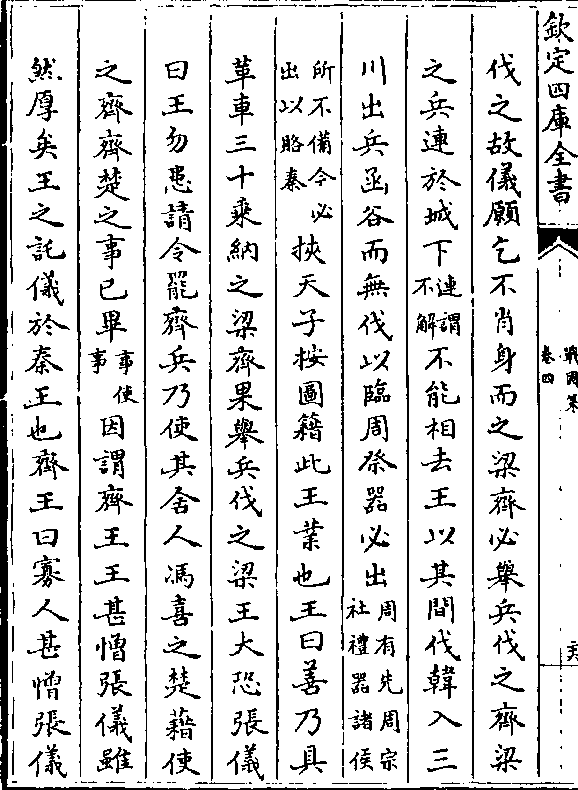 欽定四庫全書
戰國策
卷四
伐之故儀願乞不肖身而之梁齊必舉兵伐之齊梁
之兵連於城下連謂不解不能相去王以其間伐韓入三
川出兵函谷而無伐以臨周祭器必出周有先周宗社禮器諸侯
所不備今必出以賂秦挾天子按圖籍此王業也王曰善乃具
革車三十乘納之梁齊果舉兵伐之梁王大恐張儀
曰王勿患請令罷齊兵乃使其舍人馮喜之楚藉使
之齊齊楚之事已畢事使事因謂齊王王甚憎張儀雖
然厚矣王之託儀於秦王也齊王曰寡人甚憎張儀